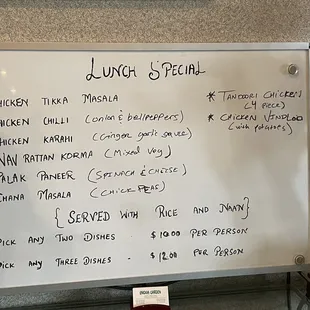 LUNCH SPECIAL
HICKEN TIKKA MASALA
HICKEN CHILLI (onion & bellpeppers)
HICKEN KARAHI (Ginger garlic sauce)
NAV RATTAN KORMA (Mixed veg)
PALAK PANEER (SPINACH & CHEESE)
CHANA MASALA (CHICK PEAS)
* TANDOORI CHICKEN
(4 piece)
* CHICKEN VINDLOO
(with potatoes)
{ SERVED WITH RICE AND NAAN }
PICK ANY TWO DISHES - $ 10.00 PER PERSON
PICK ANY THREE DISHES - $ 12.00 PER PERSON